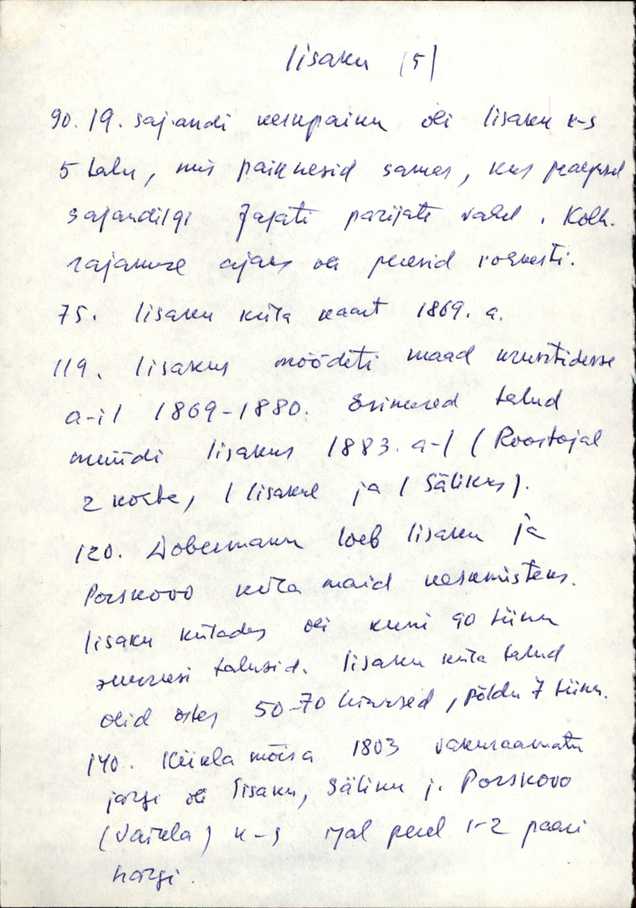 Iisaku (5)
90. 19. sajandi keskpaiku oli Iisaku k-s
5 talu, mis paiknesid samas, kus praegusel
sajandilgi Jajati parijate vahel. Kolh.
rajamise ajaks oli peresid rohkesti.
75. Iisaku küla kaart 1869. a.
119. Iisakus mõõdeti maad kruntidesse
a-il 1869-1880. Esimesed talud
müüdi Iisakus 1883. a-l (Roostojal
2 kohta, 1 Iisakul ja 1 Sälikus).
120. Dobermann loeb Iisaku ja
Porskovo küla maid keskmisteks.
Iisaku külades oli kuni 90 tiinu
suurusi talusid. Iisaku küla talud
olid aga 50-70 tiinused, põldu 7 tiinu.
140. Kiikla mõisa 1803 vakuraamatu
järgi oli Iisaku, Säliku j. Porskovo
(Vaikla) k-s igal perel 1-2 paari
härgi.